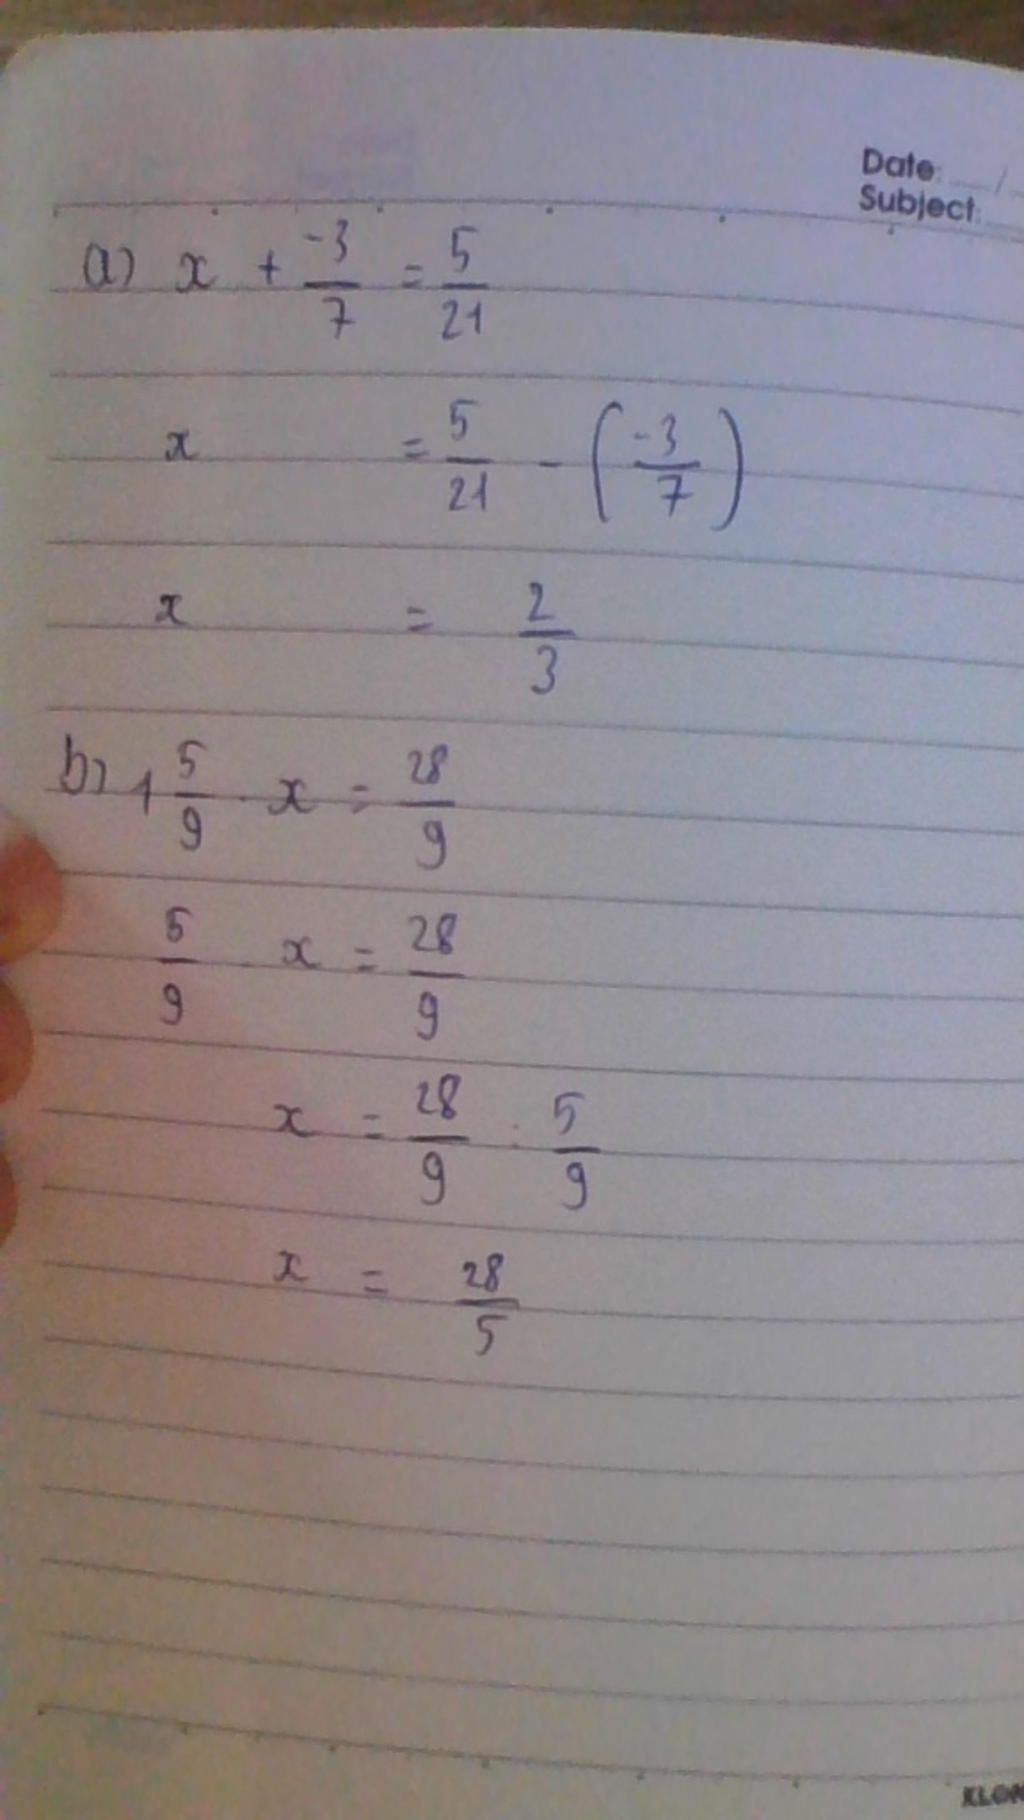 Date: __/
Subject:
a) x + -3/7 = 5/21
x = 5/21 - (-3/7)
x = 2/3
b) 1 5/9 . x = 28/9
5/9 . x = 28/9
x = 28/9 : 5/9
x = 28/5